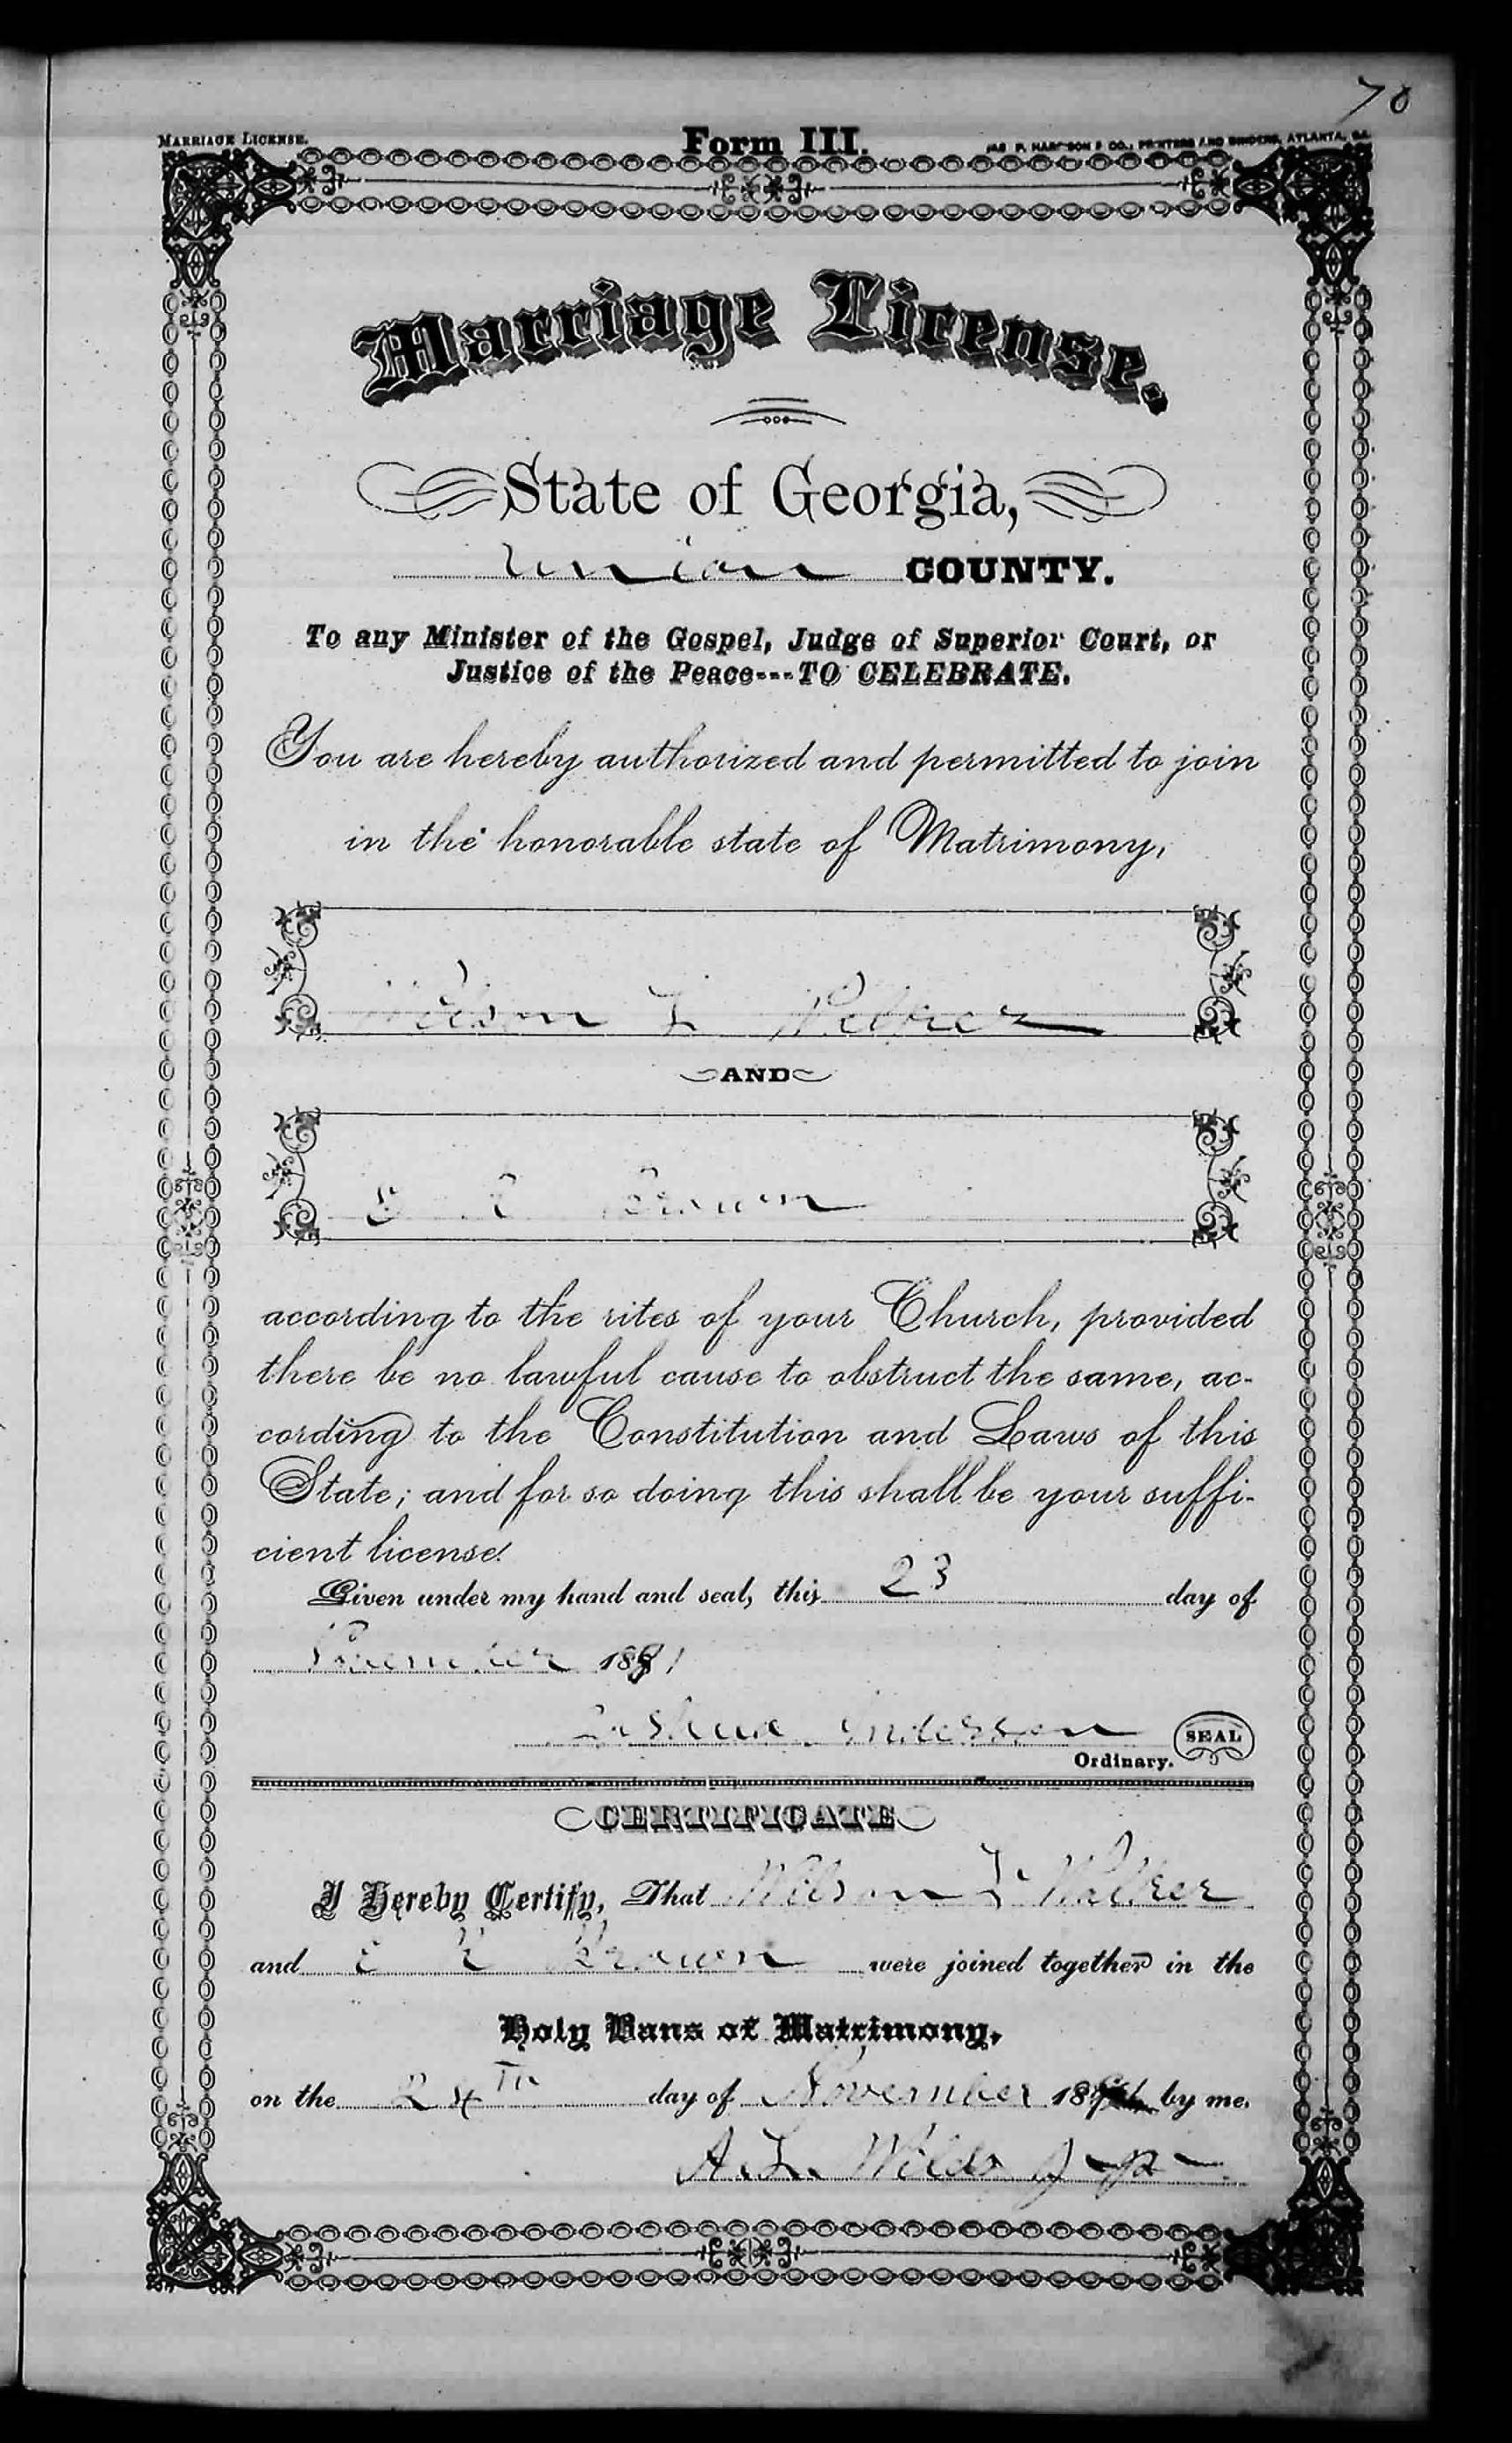 70
MARRIAGE LICENSE.
Form III.
JAS. P. HARRISON & CO., PRINTERS AND BINDERS, ATLANTA, GA.
Marriage License.
State of Georgia,
Union COUNTY.
To any Minister of the Gospel, Judge of Superior Court, or
Justice of the Peace---TO CELEBRATE.
You are hereby authorized and permitted to join
in the honorable state of Matrimony,
Wilson L Walker
AND
E E Brown
according to the rites of your Church, provided
there be no lawful cause to obstruct the same, ac-
cording to the Constitution and Laws of this
State; and for so doing this shall be your suffi-
cient license.
Given under my hand and seal, this 23 day of
November 1881
Joshua Anderson
SEAL
Ordinary.
CERTIFICATE
I Hereby Certify, That Wilson L Walker
and E E Brown were joined together in the
Holy Bans of Matrimony,
on the 24th day of November 1881 by me.
A. L. Wilds J P